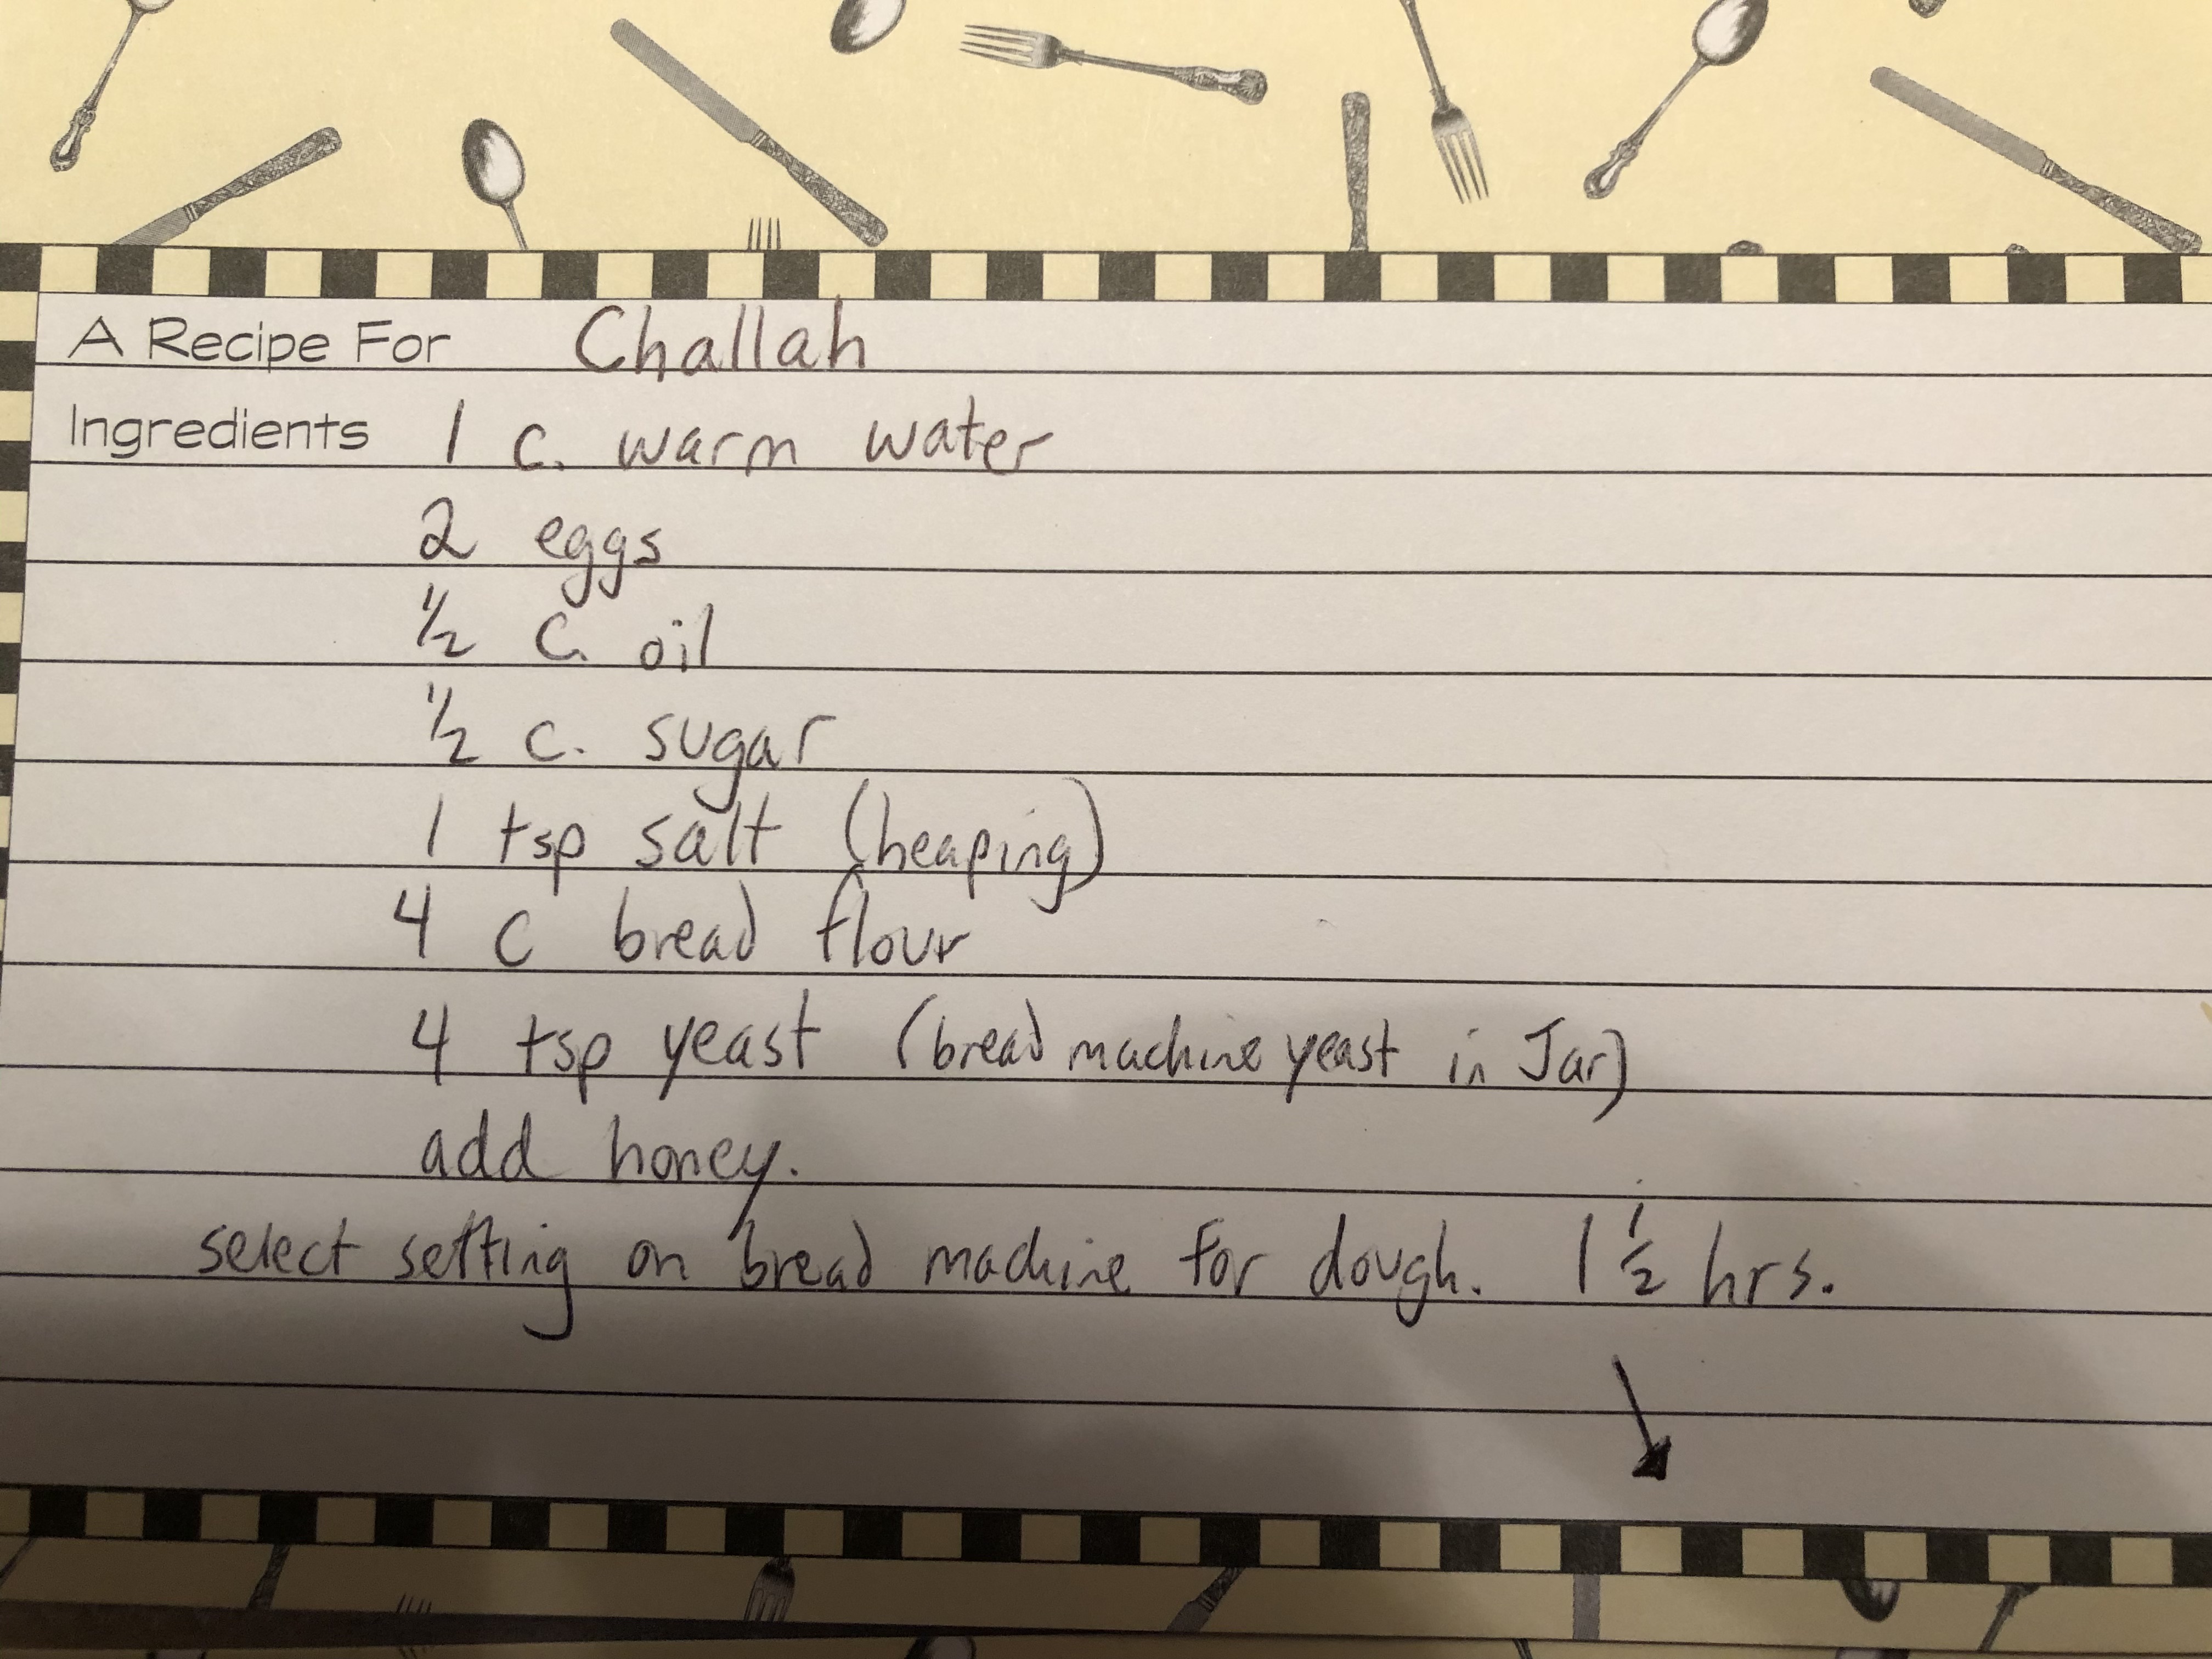 A Recipe For Challah
Ingredients 1 c. warm water
2 eggs
1/2 c. oil
1/2 c. sugar
1 tsp salt (heaping)
4 c bread flour
4 tsp yeast (bread machine yeast in Jar)
add honey.
select setting on bread machine for dough. 1 1/2 hrs.